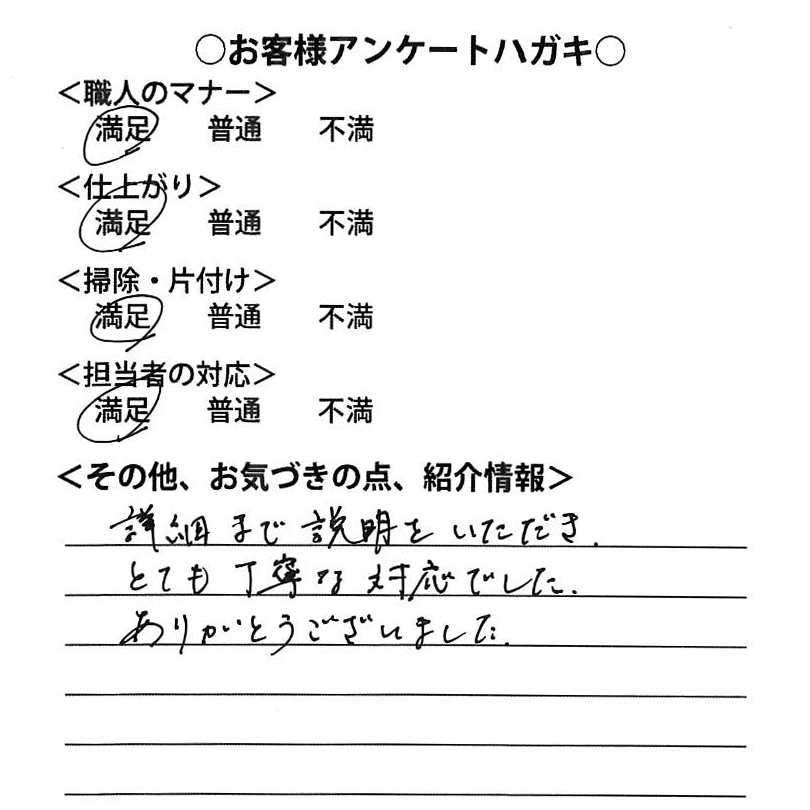 ○お客様アンケートハガキ○
＜職人のマナー＞
満足 普通 不満
＜仕上がり＞
満足 普通 不満
＜掃除・片付け＞
満足 普通 不満
＜担当者の対応＞
満足 普通 不満
＜その他、お気づきの点、紹介情報＞
詳細まで説明をいただき、
とても丁寧な対応でした。
ありがとうございました。